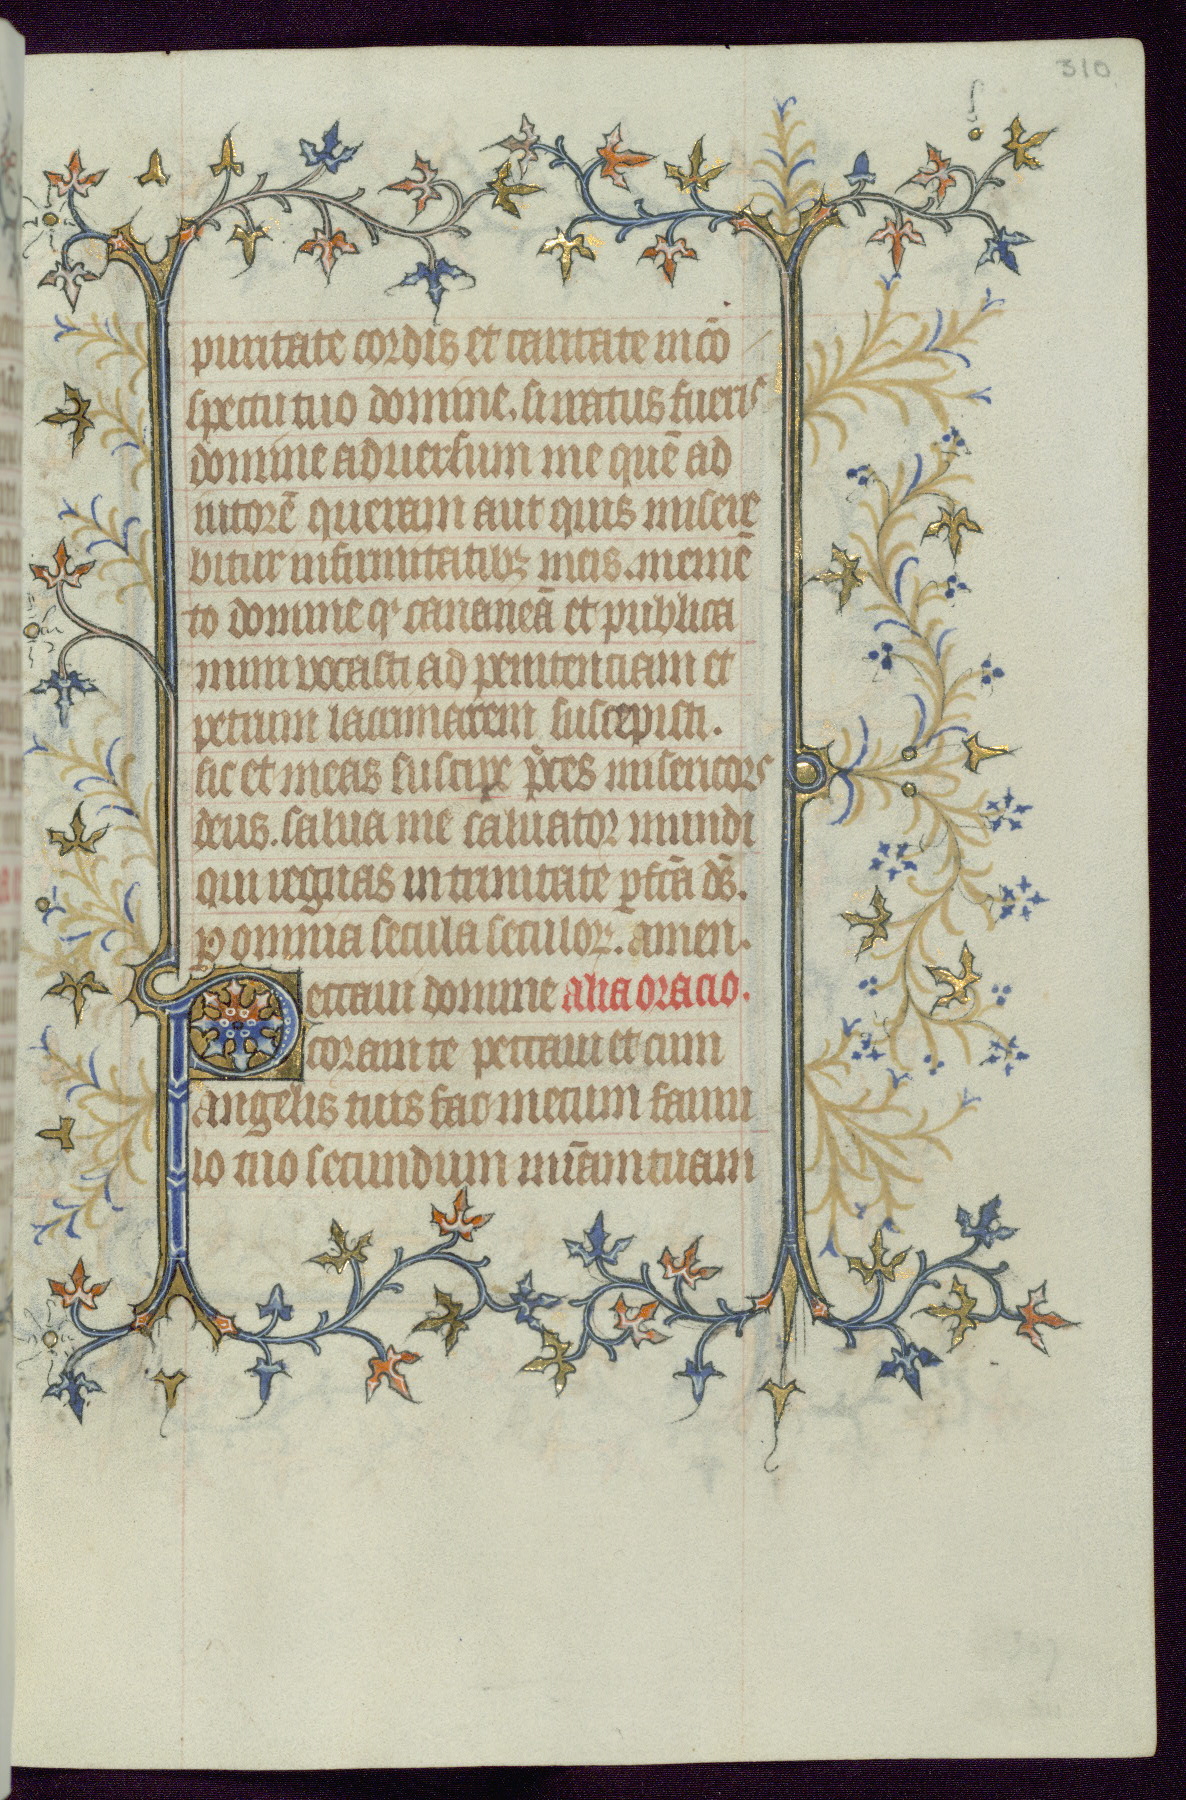 310
puritate cordis et caritate in cō
spectu tuo domine. si iratus fueris
domine aduersum me quē ad
iutorē queram aut quis misere
bitur infirmitatibꝫ meis. memē
to domine qͬ cananeā et publica
num vocasti ad penitenciam et
petrum lacrimarem suscepisti.
sic et meas suscipe p̄ces misericors
deus. salua me saluator mundi
qui regnas in trinitate ꝑfcā ds̄.
ꝑ omnia secula seculoꝝ. amen.
Peccaui domine alia oracio.
coram te peccaui et cum
angelis tuis fac mecum famu
lo tuo secundum mīam tuam